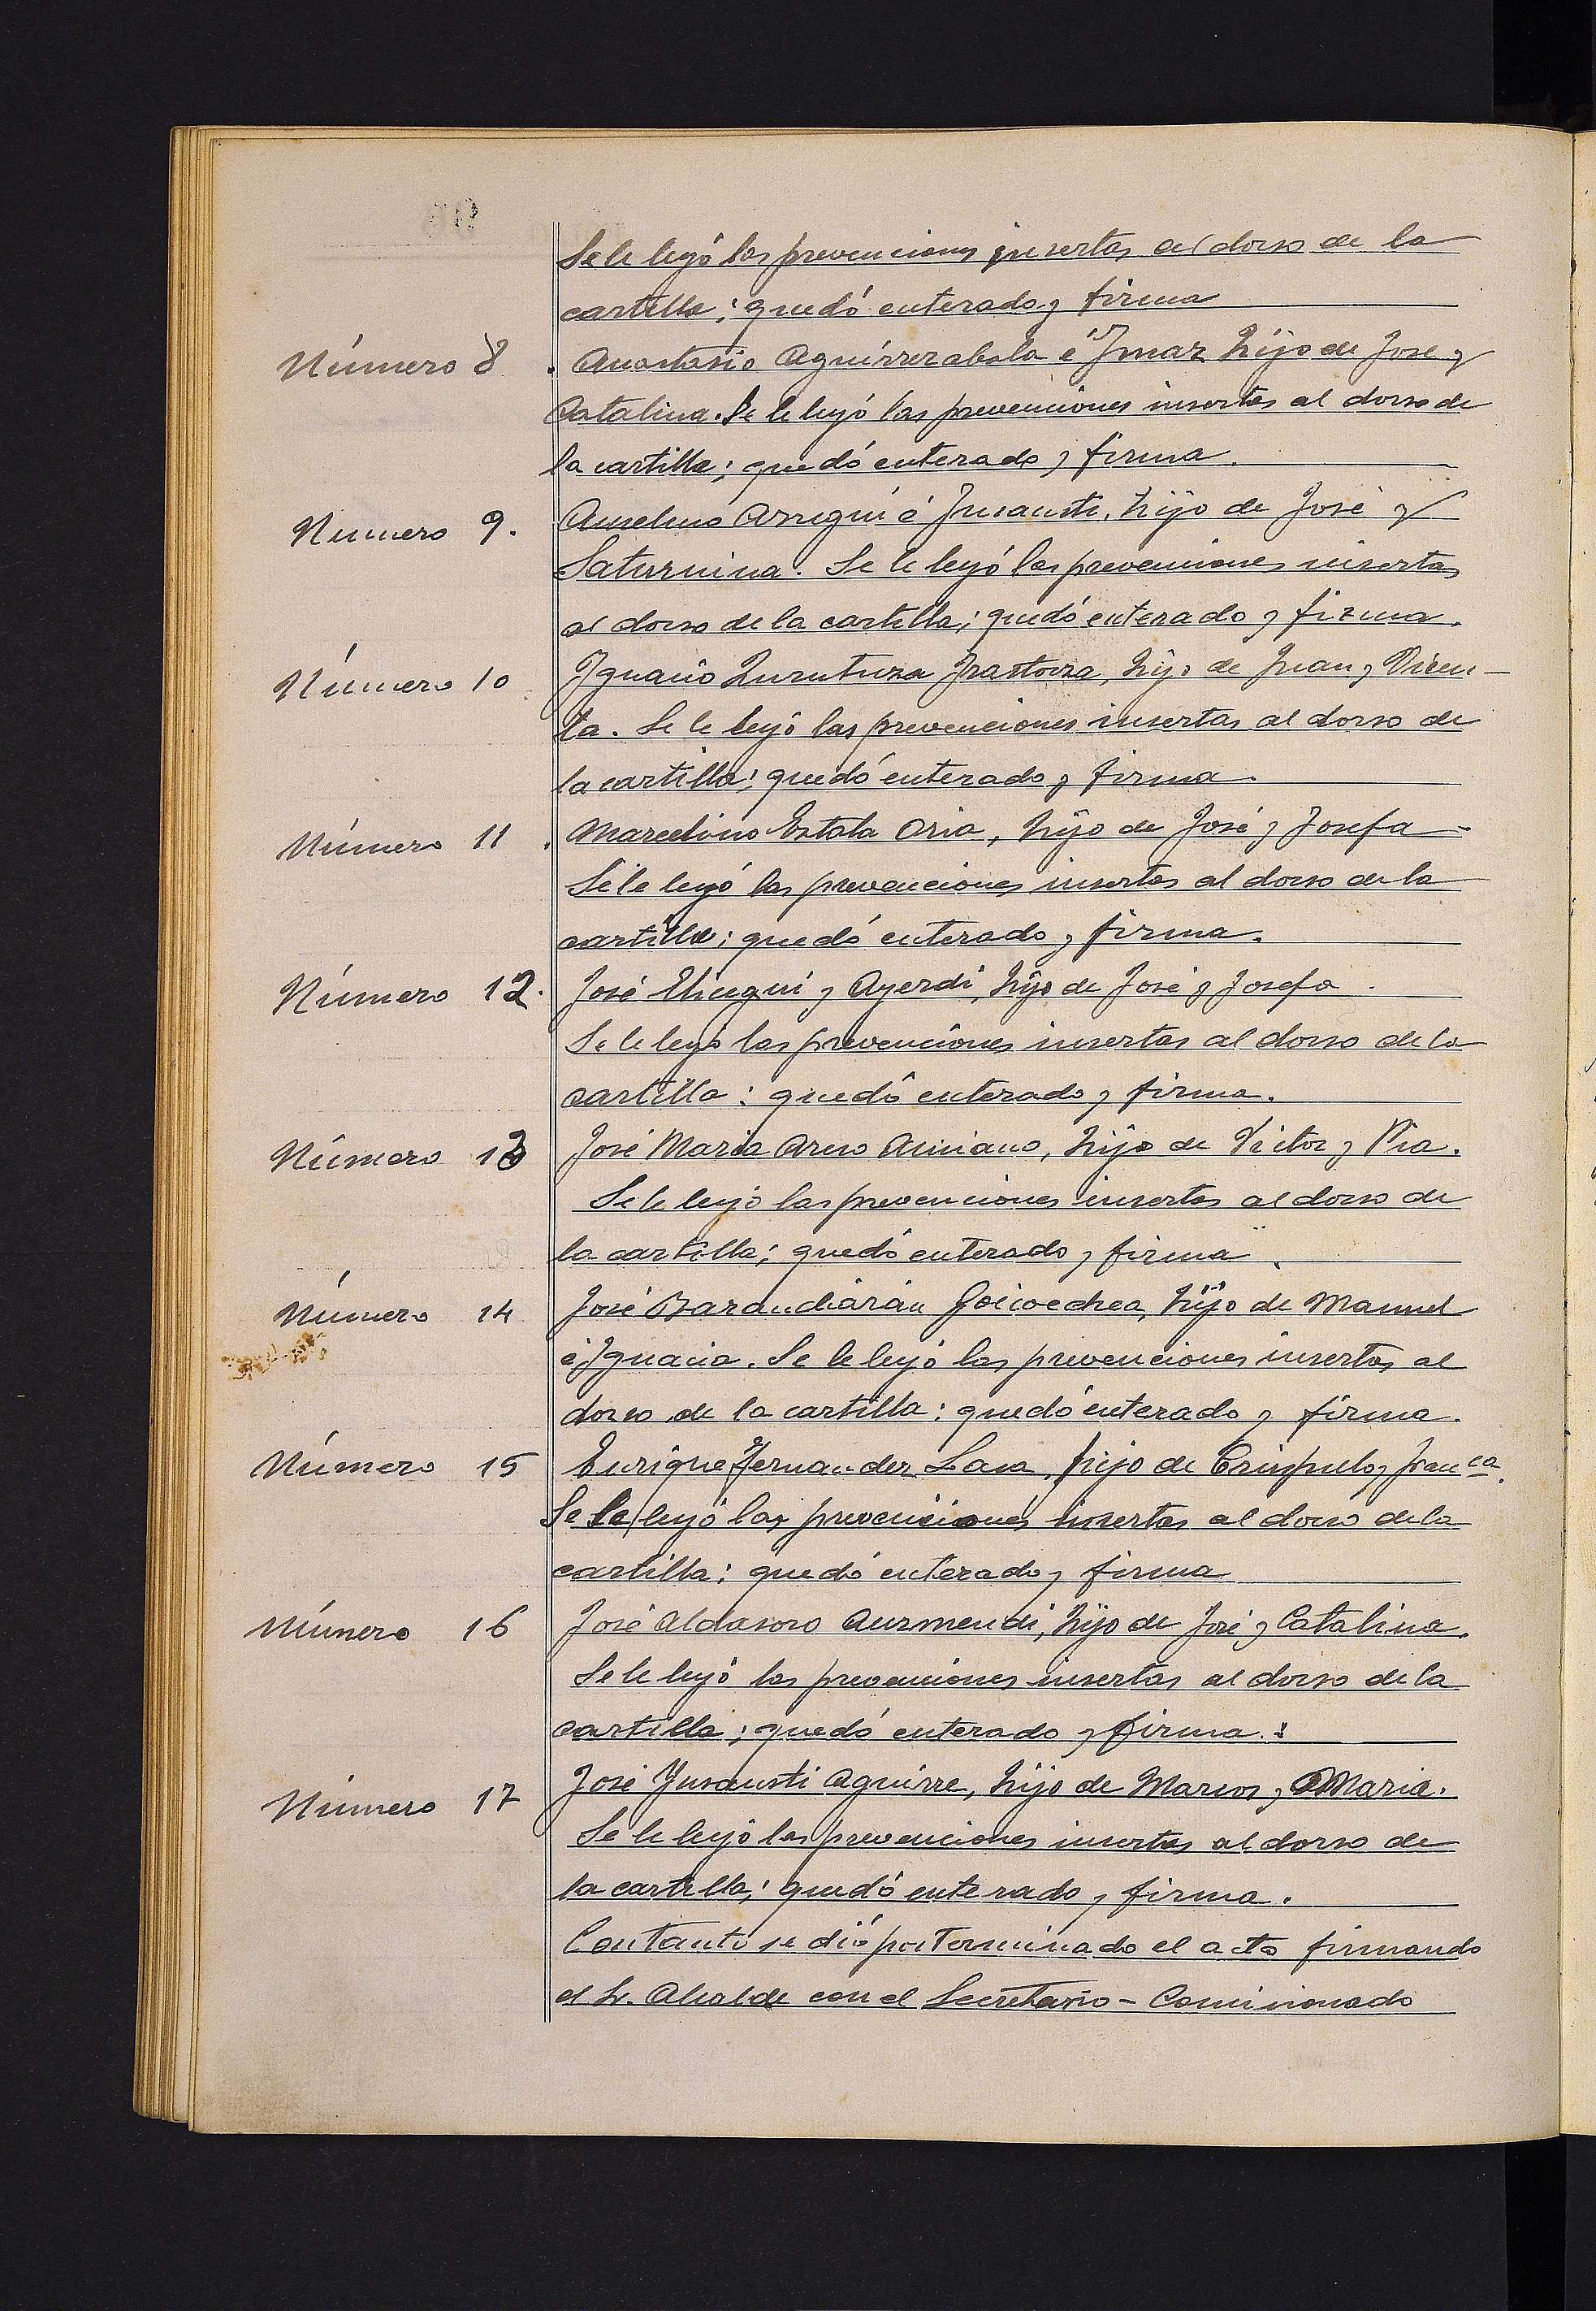 Se le leyó las prevenciones insertas al dorso de la
cartilla; quedó enterado y firma
Número 8. Anastasio Aguirrezabala é Imaz hijo de José y
Catalina. Se le leyó las prevenciones insertas al dorso de
la cartilla; quedó enterado y firma.
Numero 9. Anselmo Arregui é Insausti, hijo de José y
Saturnina. Se le leyó las prevenciones insertas
al dorso de la cartilla; quedó enterado y firma.
Número 10 Ygnacio Zurutuza Irastorza, hijo de Juan y Vicen-
ta. Se le leyó las prevenciones insertas al dorso de
la cartilla; quedó enterado y firma.
Número 11. Marcelino Estala Oria, hijo de José y Josefa -
Se le leyó las prevenciones insertas al dorso de la
cartilla; quedó enterado y firma.
Número 12. José y Ayerdi, hijo de José y Josefa.
Se le leyó las prevenciones insertas al dorso de la
cartilla: quedó enterado y firma.
Número 13 José Maria hijo de Victor y Pia.
Se le leyó las prevenciones insertas al dorso de
la cartilla; quedó enterado y firma.
Número 14 José Barandiarán Goicoechea, hijo de Manuel
é Ygnacia. Se le leyó las prevenciones insertas al
dorso de la cartilla: quedó enterado y firma.
Número 15 Enrique Fernandez hijo de y Franca.
Se le leyó las prevenciones insertas al dorso de la
cartilla: quedó enterado y firma
Número 16 José Aldasoro Auzmendi, hijo de José y Catalina.
Se le leyó las prevenciones insertas al dorso de la
cartilla; quedó enterado y firma.
Número 17 José Ynsausti Aguirre, hijo de Marcos y Maria.
Se le leyó las prevenciones insertas al dorso de
la cartilla; quedó enterado y firma.
Con tanto se dió por terminado el acto firmando
el Sr. Alcalde con el Secretario - Comisionado